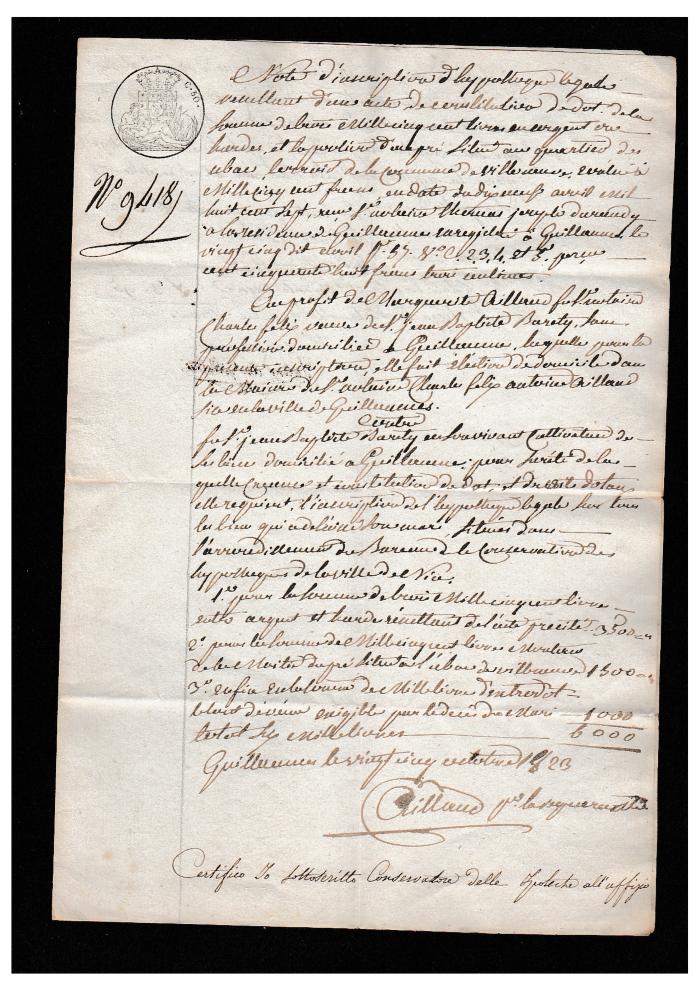 C. 50.
N.o 9418
Note d'inscription d'hypotheque legale
resultant d'une acte de constitution de dot de la
somme de trois Mille cinq cent livres en argent ou
hardes, et la portion d'un pré situé au quartier des
ubacs, terroir de la Commune de villeneuve, evalué à
Mille cinq cent francs, en date du dixneuf avril mil
huit cent sept, reçu S.r notaire thomas joseph durandy
a la residence de Guillaumes enregistré à Guillaumes le
vingt cinq dit avril f.o 57. V.o C. 2 3, 4 et 5. perçu
cent cinquante huit francs trois centimes.
Au profit de Marguerite Aillaud fu S.r notaire
Charles felix veuve de S.r jean Baptiste Barety, sans
profession domiciliée a Guillaumes, laquelle pour la
presente inscription, elle fait élection de domicile dans
la Maison du S.r notaire Charle felix antoine Aillaud
sise en la ville de Guillaumes.
Contre
fu S.r jean Baptiste Barety en son vivant Cultivateur de
ses biens domicilié a Guillaumes; pour sureté de la
quelle Creance et constitution de dot, et droits dotaux
elle requiert, l'inscription de l'hypotheque legale sur tous
les biens qui a delaissé son mari, situés dans
l'arrondissement du Bureau de la Conservation des
hypotheques de la ville de Nice,
1.o pour la somme de trois Mille cinq cent livres
entre argent et hardes résultant de l'acte precité 3500
2.o pour la somme de Mille cinq cent livres Montant
de la Moitié du pré situé a l'ubac de villeneuve 1500
3.o enfin en la somme de Mille livres d'entredot
exigible par le decès du Mari 1000
total six Mille livres 6000
Guillaumes le vingt cinq octobre 1823
Aillaud p.r la requerante
Certifico Io sottoscritto Conservatore delle Ipoteche all'uffizio